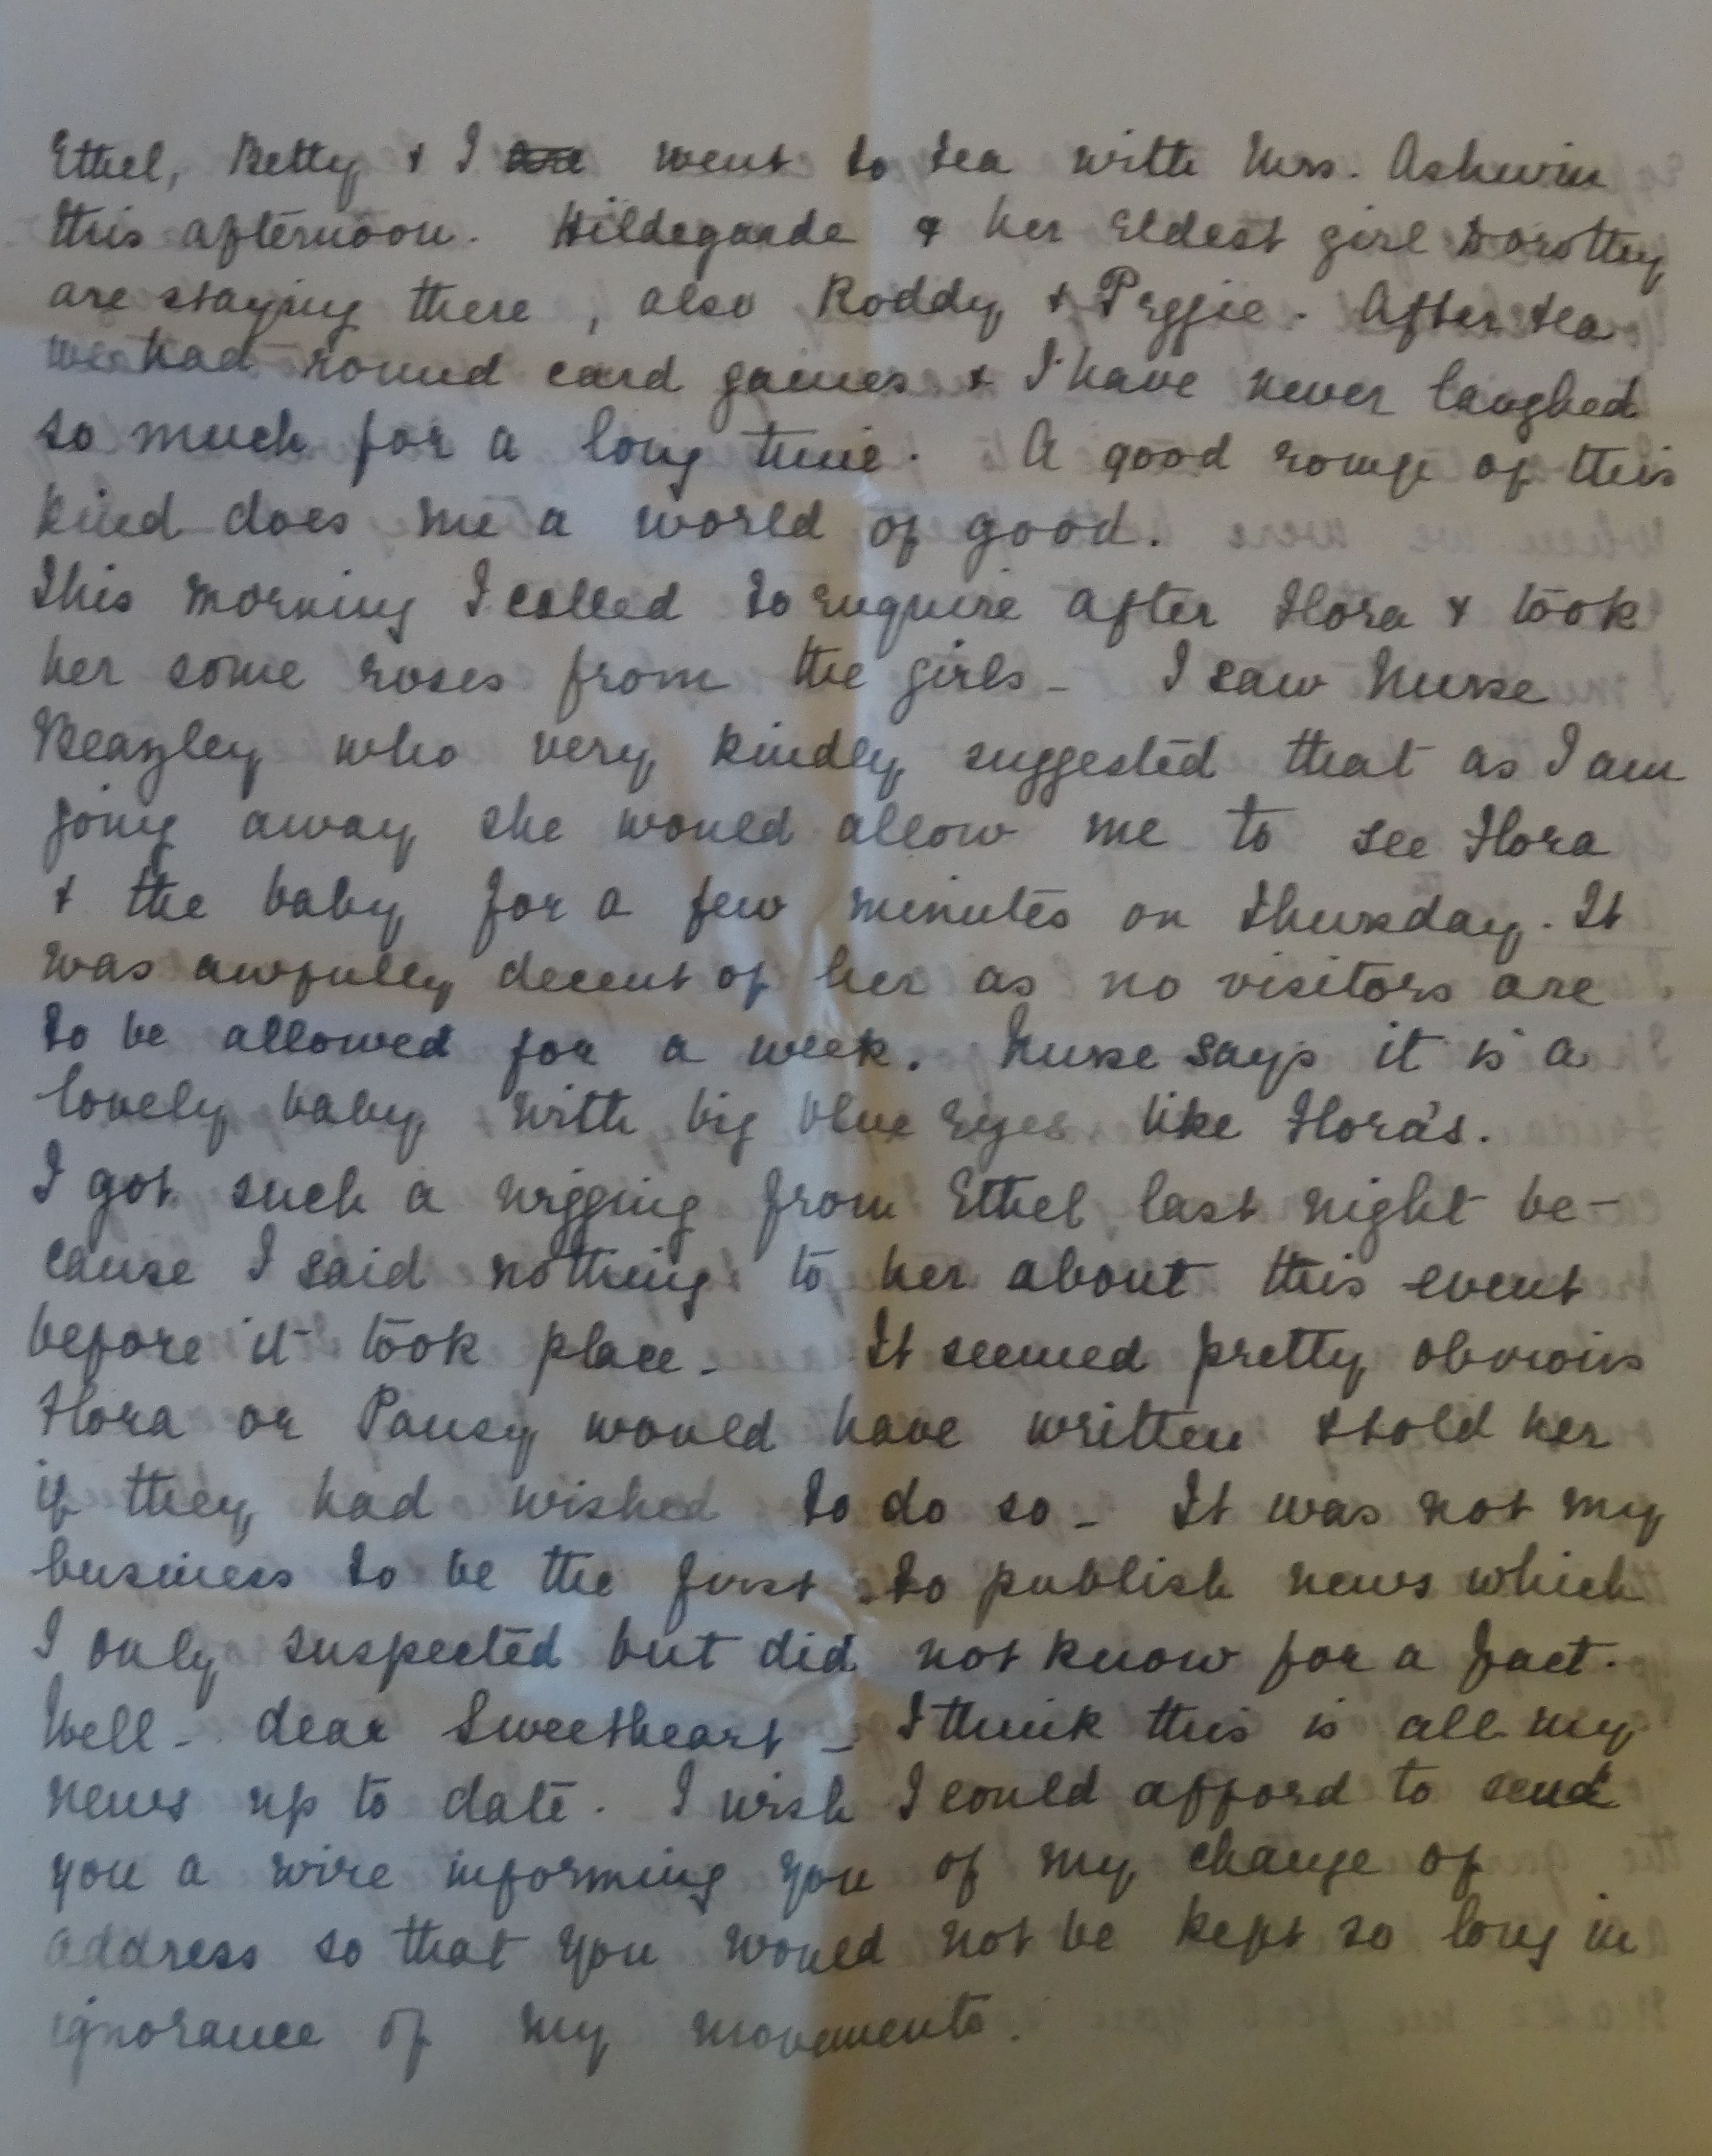 Ethel, Betty & I are went to tea with Mrs. Ashwin
this afternoon. Hildegarde & her Eldest girl Dorothy
are staying there, also Roddy & Peggie. After tea
we had round card games & I have never laughed
so much for a long time. A good romp of this
kind does me a world of good.
This morning I called to enquire after Flora & took
her some roses from the girls - I saw Nurse
Beazley who very kindly suggested that as I am
going away she would allow me to see Flora
& the baby for a few minutes on Thursday. It
was awfully decent of her as no visitors are
to be allowed for a week. Nurse says it is a
lovely baby with big blue eyes like Flora's.
I got such a wigging from Ethel last night be-
cause I said nothing to her about this event
before it took place - It seemed pretty obvious
Flora or Pansy would have written & told her
if they had wished to do so - It was not my
business to be the first to publish news which
I only suspected but did not know for a fact.
Well - dear Sweetheart - I think this is all my
news up to date. I wish I could afford to send
you a wire informing you of my change of
address so that you would not be kept so long in
ignorance of my movements.